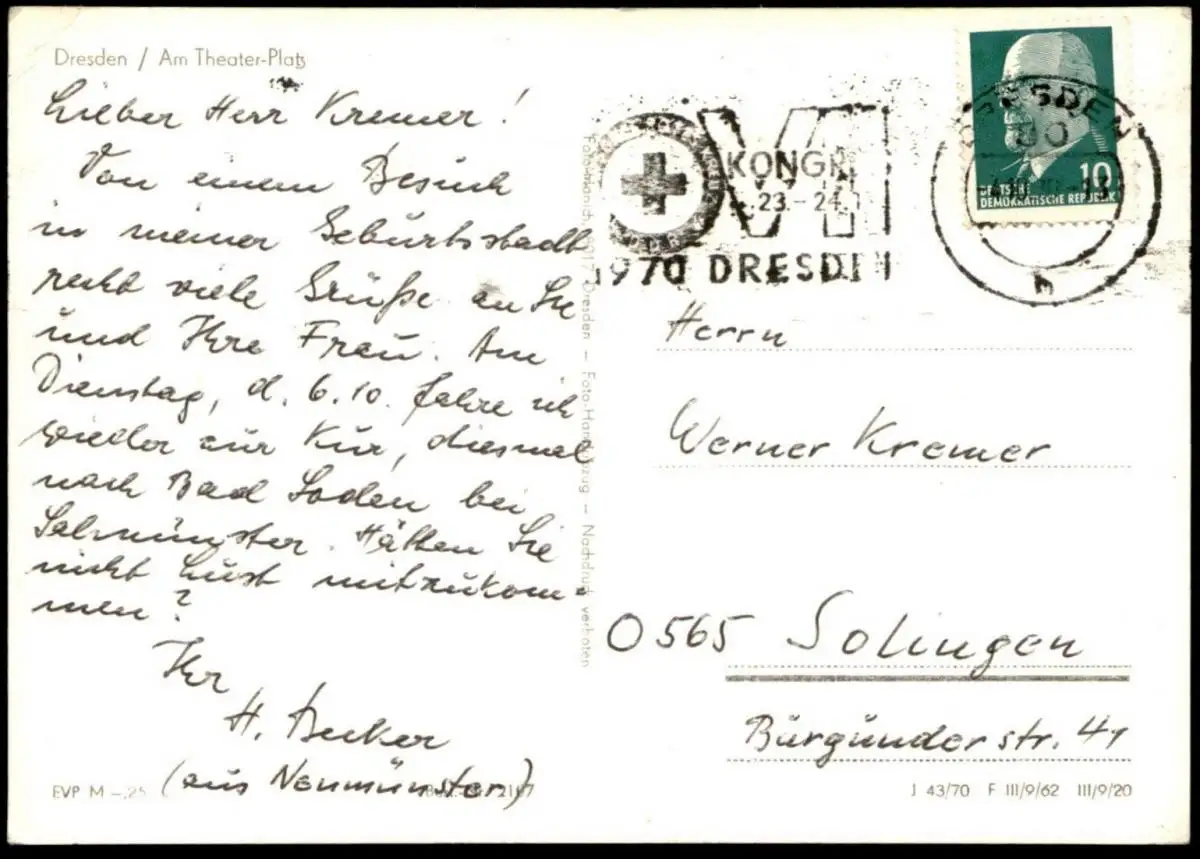 Dresden / Am Theater-Platz
Lieber Herr Kremer!
Von einem Besuch
in meiner Geburtsstadt
recht viele Grüße an Sie
und Ihre Frau. Am
Dienstag, d. 6.10. fahre ich
wieder zur Kur, diesmal
nach Bad Soden bei
Salmünster. Hätten Sie
nicht Lust mitzukom-
men?
Ihr
H. Becker
(aus Neumünster)
EVP M -,25
Dresden – Foto: – Nachdruck verboten
VI
KONGR
23.–24.
1970 DRESDEN
DRESDEN
10
DEUTSCHE
DEMOKRATISCHE REPUBLIK
h
Herrn
Werner Kremer
0565 Solingen
Burgunderstr. 41
J 43/70 F III/9/62 III/9/20